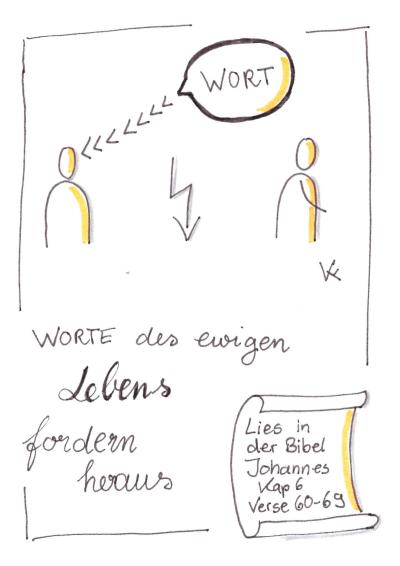 WORT
WORTE des ewigen
Lebens
fordern
heraus
Lies in
der Bibel
Johannes
Kap 6
Verse 60-69